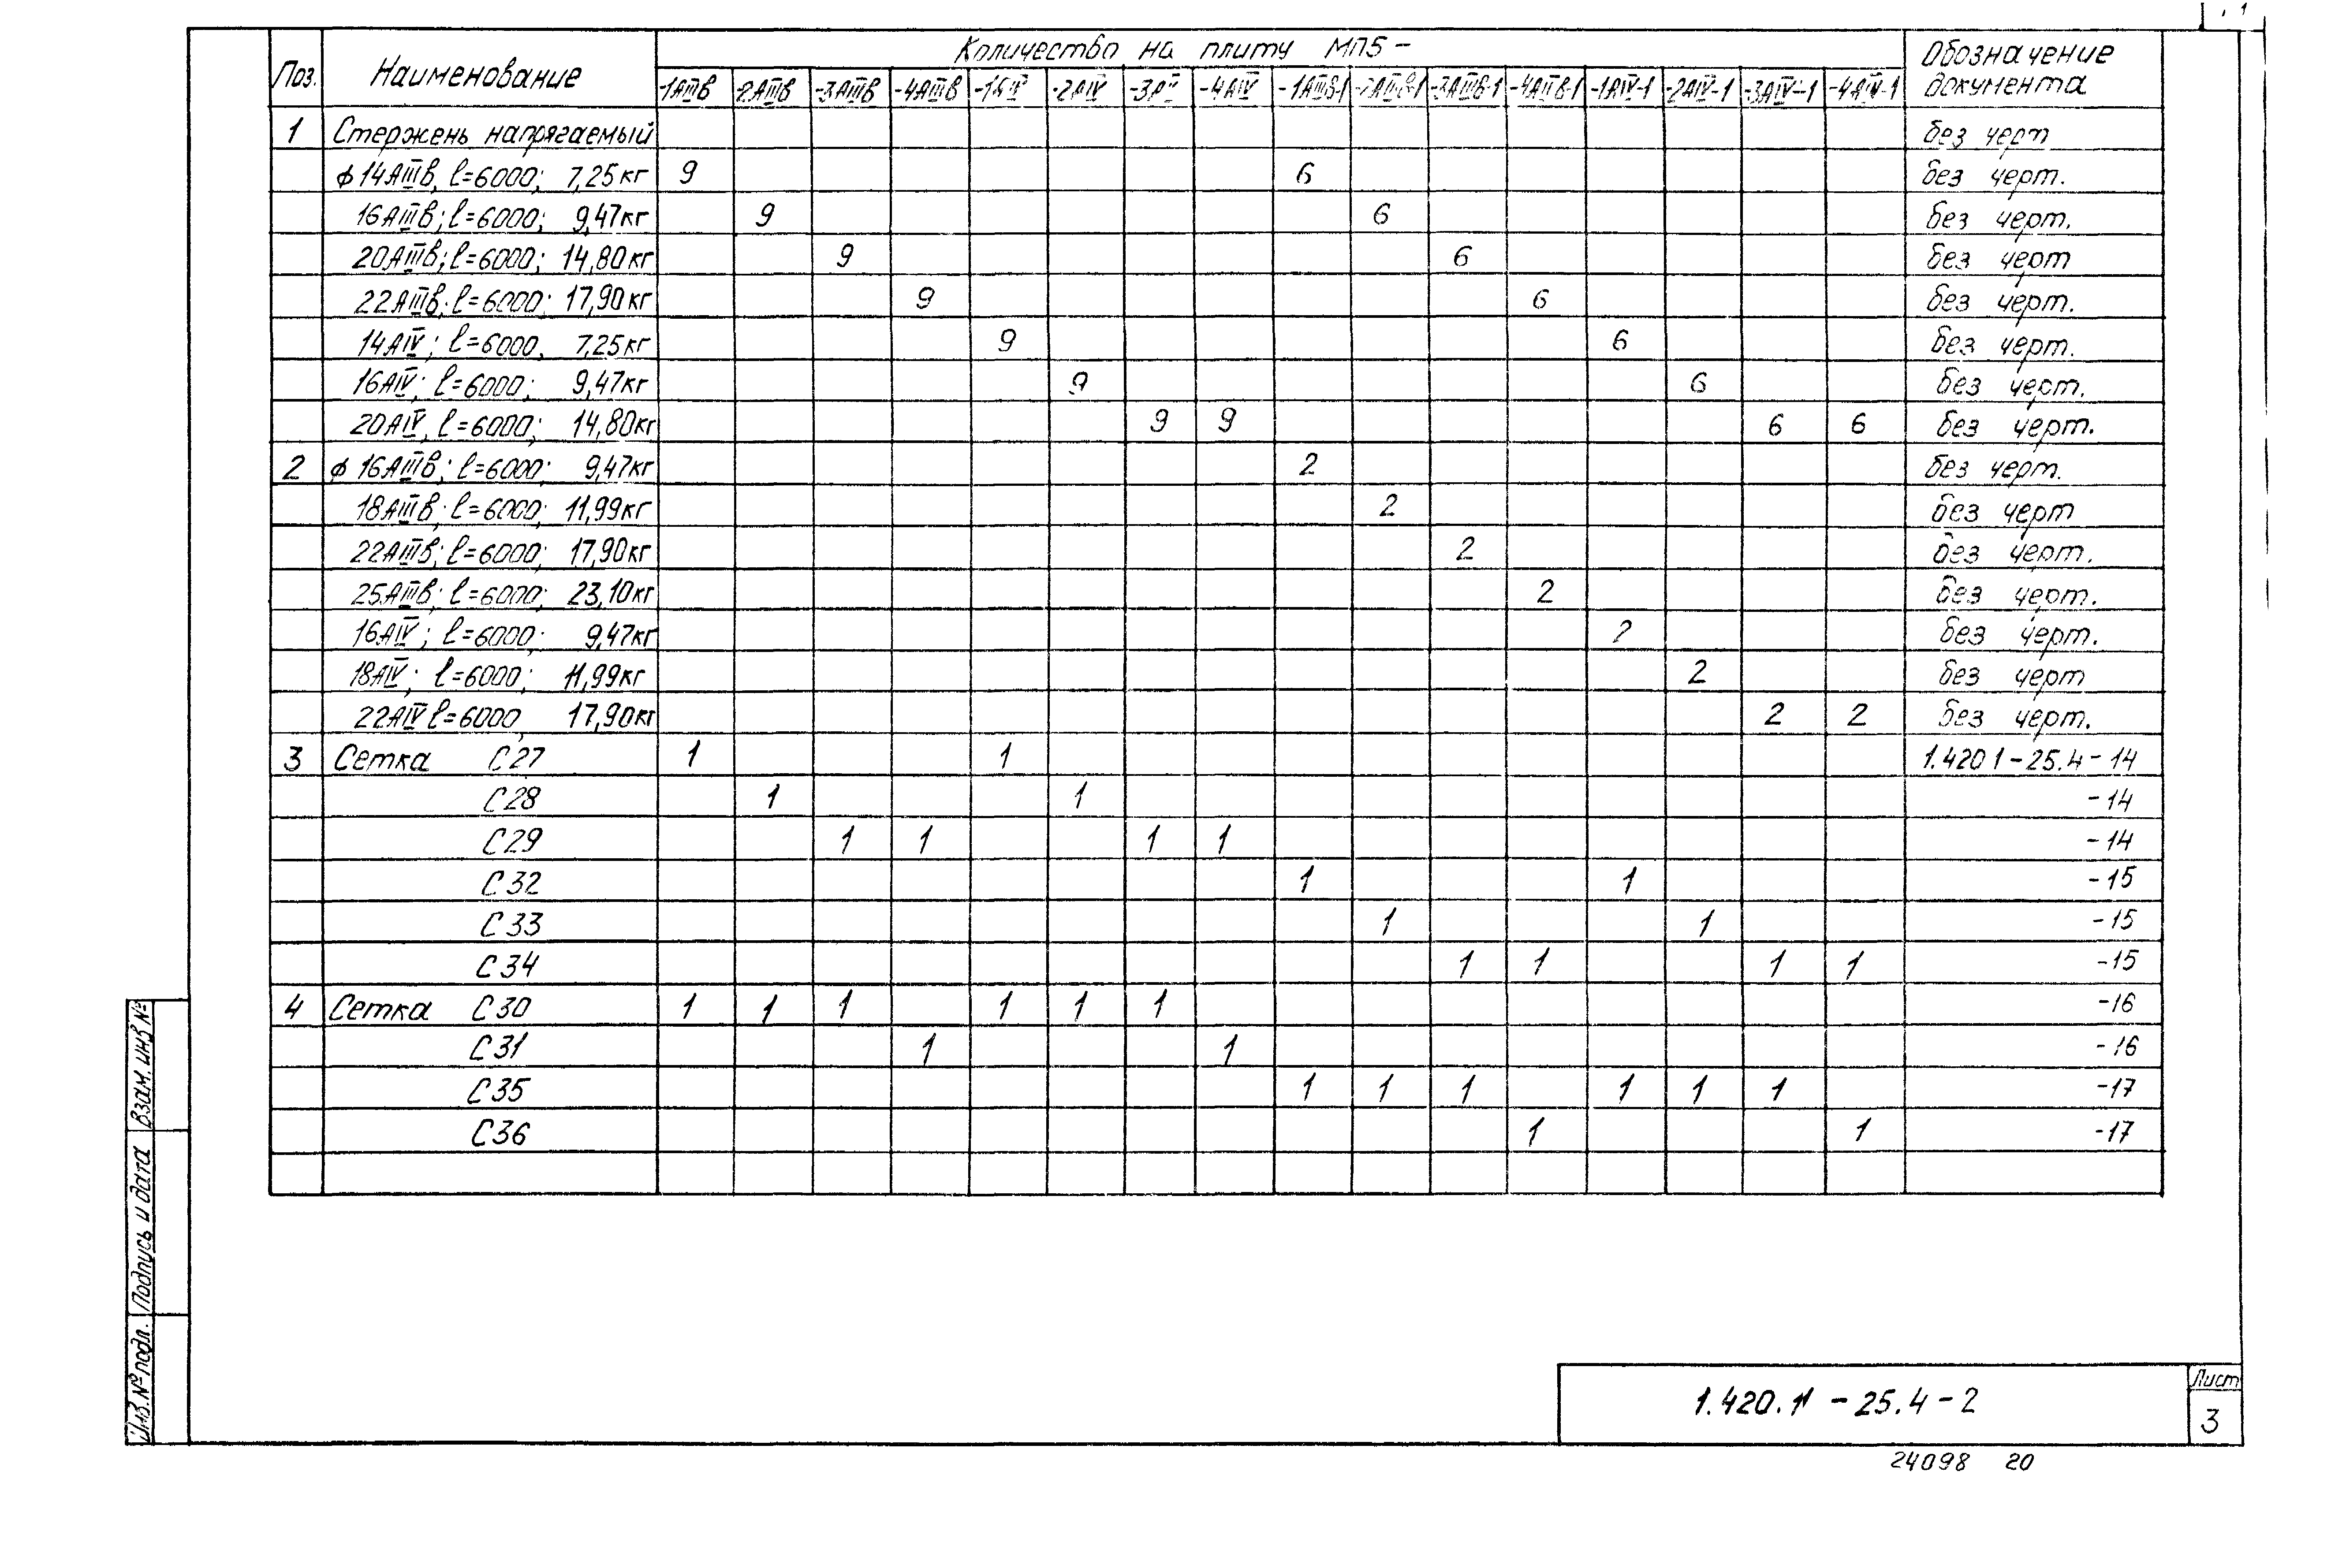 Поз. Наименование Количество на плиту МП5- Обозначение документа
-1АIIIв -2АIIIв -3АIIIв -4АIIIв -2АIV -4АIV -1АIIIв-1 -3АIIIв-1 -1АIV-1 -2АIV-1 -3АIV-1 -4АIV-1
1 Стержень напрягаемый без черт
ϕ14АIIIв, ℓ=6000; 7,25кг 9 6 без черт.
16АIIIв; ℓ=6000; 9,47кг 9 6 без черт.
20АIIIв; ℓ=6000; 14,80кг 9 6 без черт
22АIIIв; ℓ=6000; 17,90кг 9 6 без черт.
14АIV; ℓ=6000, 7,25кг 9 6 без черт.
16АIV; ℓ=6000; 9,47кг 9 6 без черт.
20АIV, ℓ=6000; 14,80кг 9 9 6 6 без черт.
2 ϕ16АIIIв; ℓ=6000; 9,47кг 2 без черт.
18АIIIв; ℓ=6000; 11,99кг 2 без черт
22АIIIв; ℓ=6000; 17,90кг 2 без черт.
25АIIIв; ℓ=6000; 23,10кг 2 без черт.
16АIV; ℓ=6000; 9,47кг 2 без черт.
18АIV; ℓ=6000; 11,99кг 2 без черт
22АIV ℓ=6000, 17,90кг 2 2 без черт.
3 Сетка С27 1 1 1.420 1-25.4-14
С28 1 1 -14
С29 1 1 1 1 -14
С32 1 1 -15
С33 1 1 -15
С34 1 1 1 1 -15
4 Сетка С30 1 1 1 1 1 1 -16
С31 1 1 -16
С35 1 1 1 1 1 1 -17
С36 1 1 -17
Взам. инв №
Подпись и дата
Инв. № подл.
1.420.1-25.4-2
Лист
3
24098 20